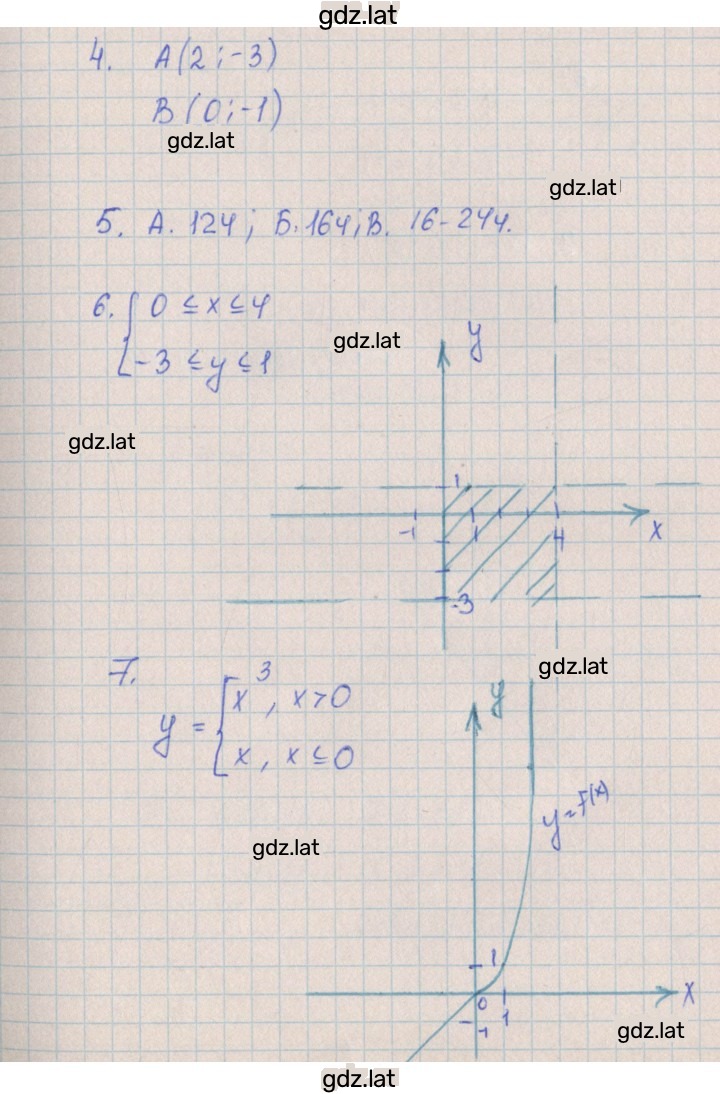 gdz.lat
4. A(2;-3)
B(0;-1)
gdz.lat
gdz.lat
5. А. 12ч; Б. 16ч; В. 16-24ч.
6. { 0 ≤ x ≤ 4
-3 ≤ y ≤ 1
gdz.lat
y
gdz.lat
1
-1 1 4 x
-3
7.
gdz.lat
y = { x³, x>0
x, x ≤ 0
y
y=F(x)
gdz.lat
1
0 1 x
-1
gdz.lat
gdz.lat